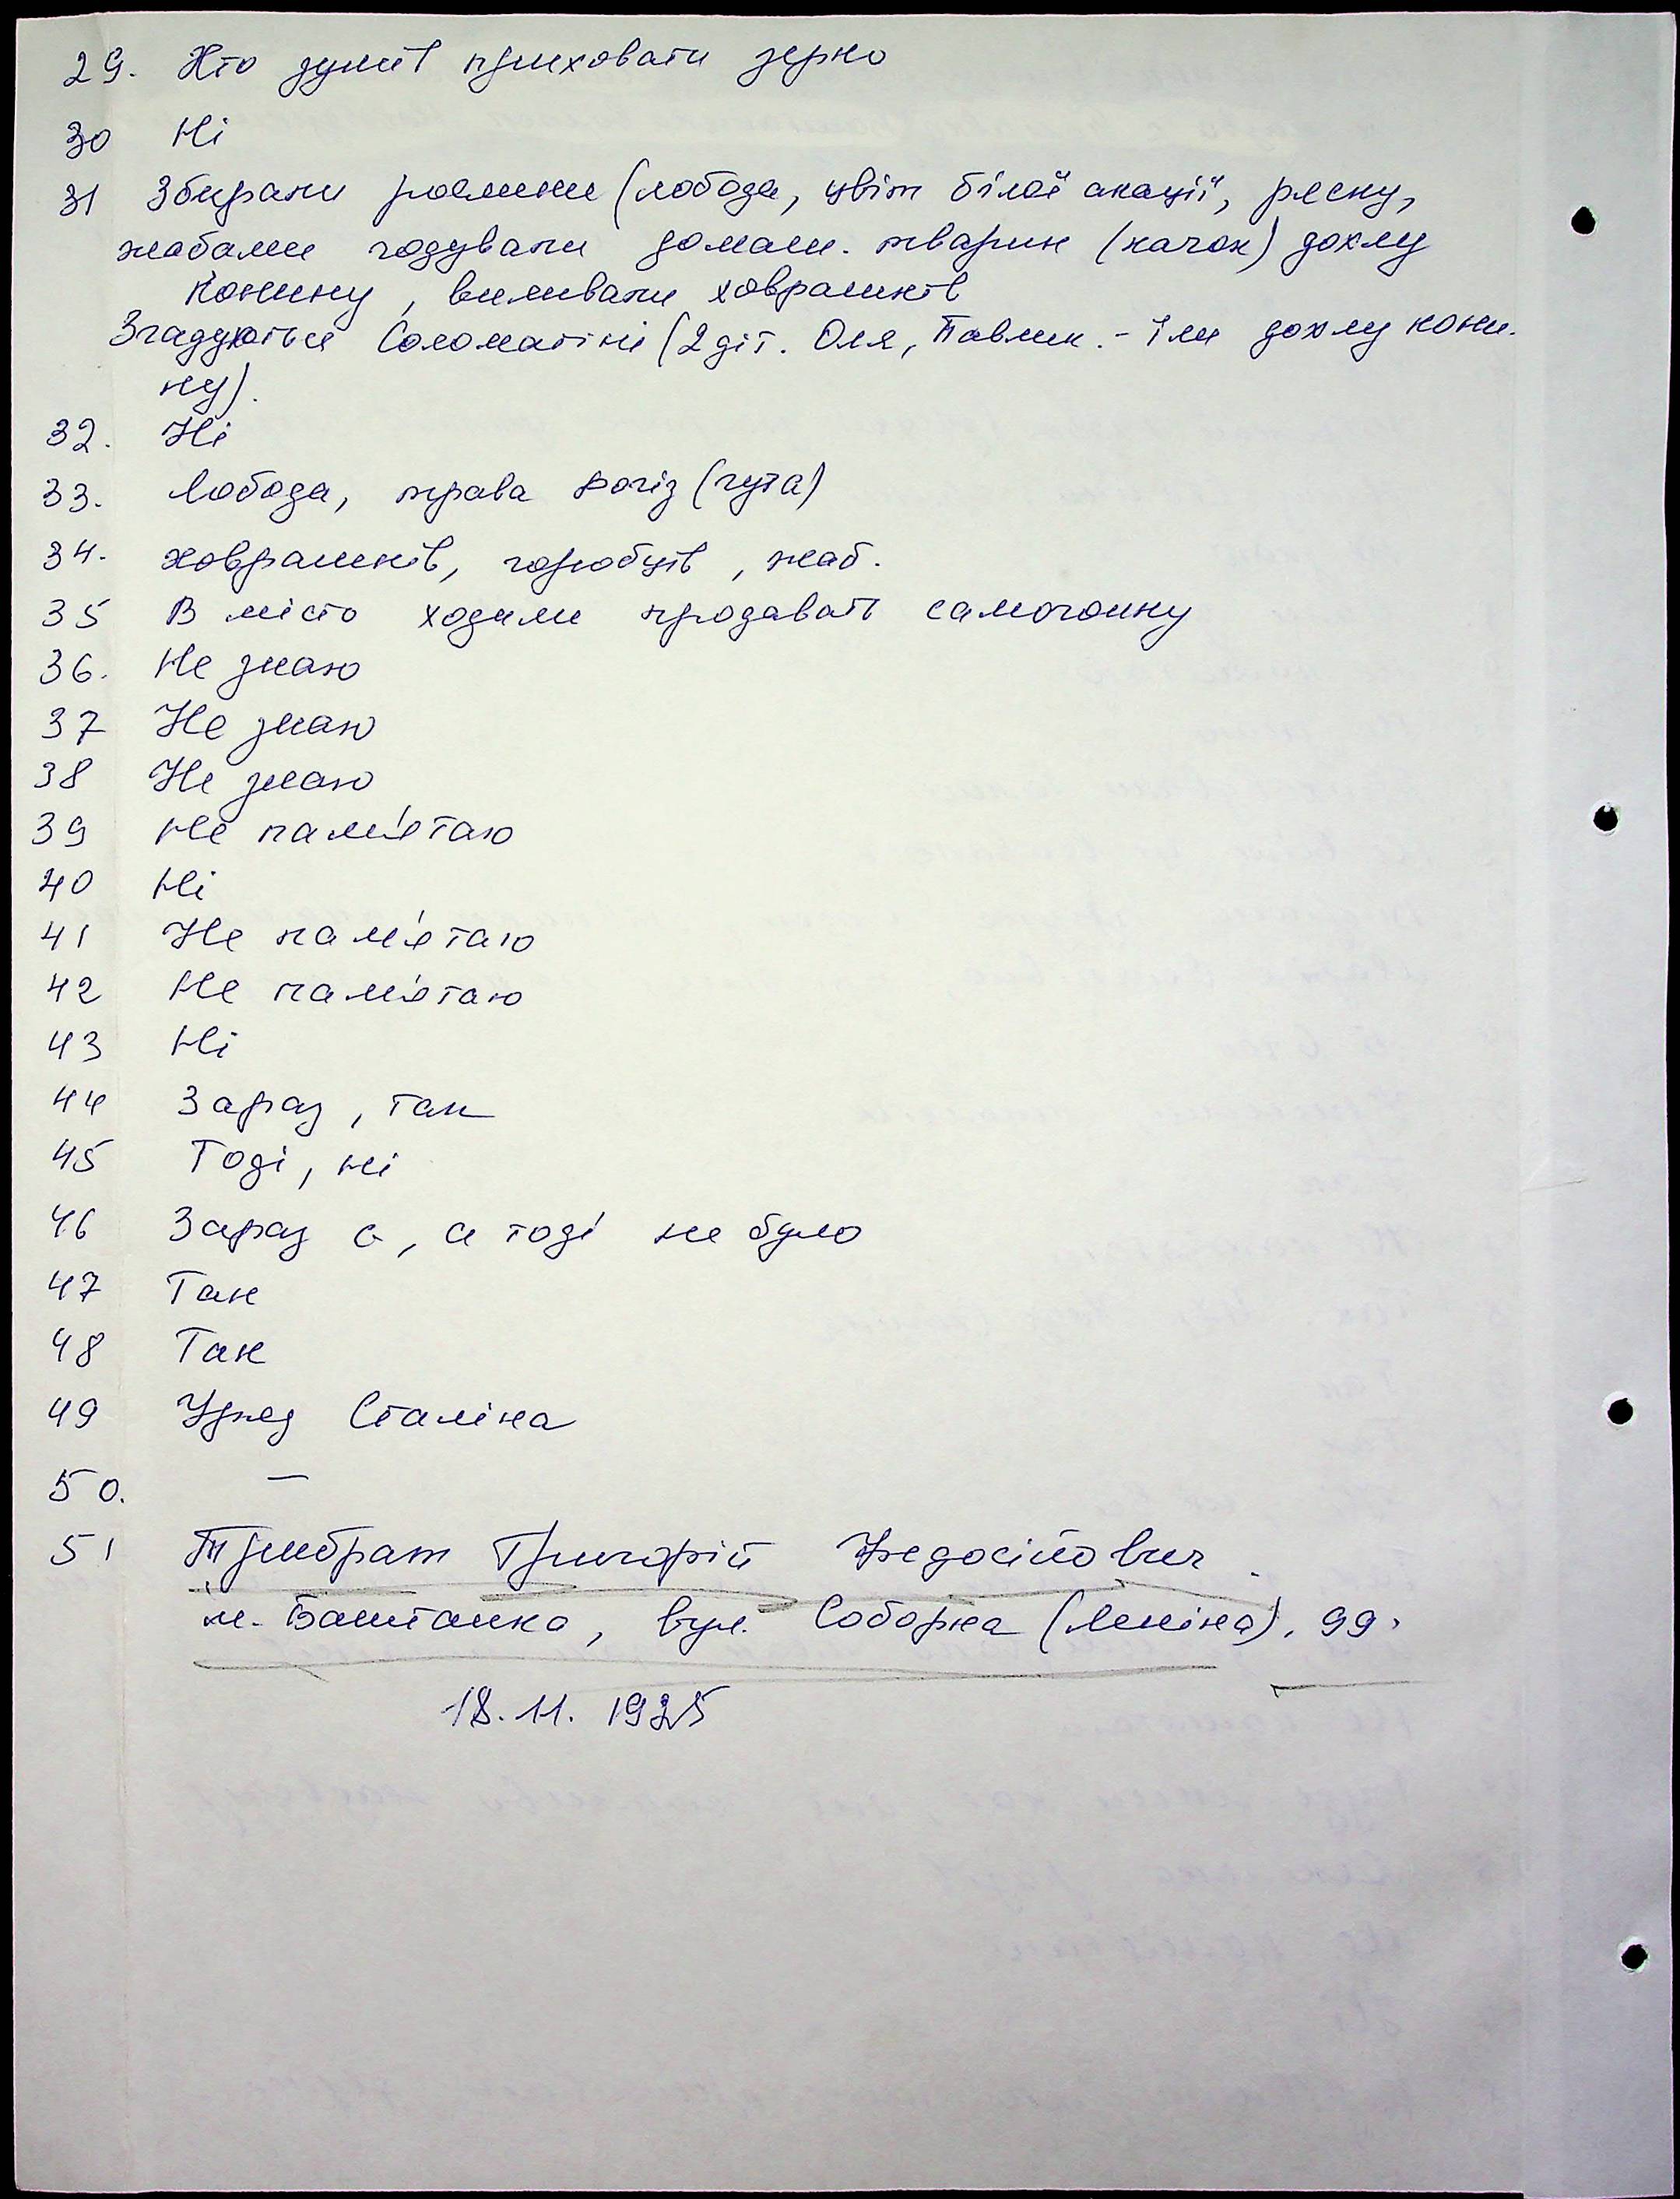 29. Хто зумів приховати зерно
30 Ні
31 Збирали рослини (лобода, цвіт білої акації, ряску,
жабами годували домаш. тварин (качок) дохлу
конину, виливали ховрашків
Згадуються Соломатіні (2 діт. Оля, Павлик. - їли дохлу кони-
ну).
32. Ні
33. Лобода, трава рогіз (чута)
34. ховрашків, горобців, жаб.
35 В місто ходили продавать самогонку
36. Не знаю
37 Не знаю
38 Не знаю
39 Не пам'ятаю
40 Ні
41 Не пам'ятаю
42 Не пам'ятаю
43 Ні
44 Зараз, так
45 Тоді, ні
46 Зараз є, а тоді не було
47 Так
48 Так
49 Уряд Сталіна
50. –
51 Трибрат Григорій Федосійович.
м. Баштанка, вул. Соборна (Леніна), 99.
18.11.1925